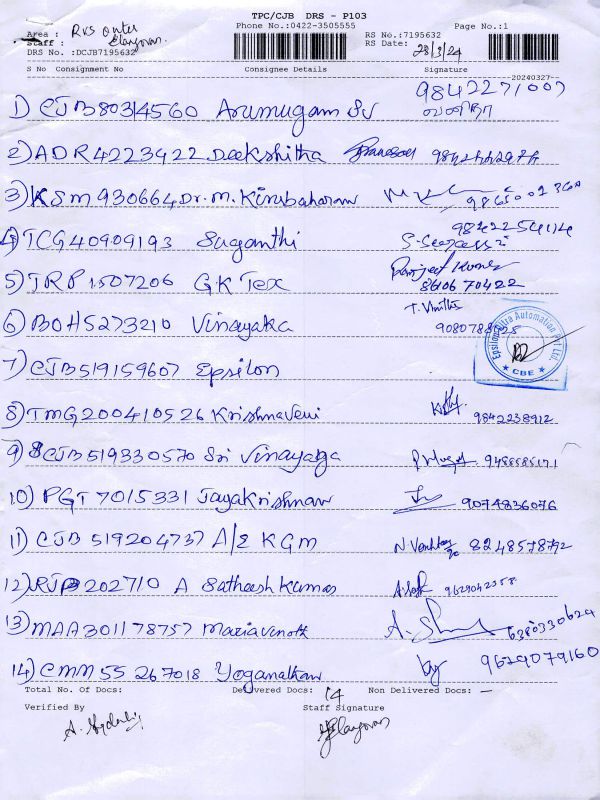 TPC/CJB DRS - P103
Phone No.:0422-3505555 Page No.:1
Area : RVS onter
Staff : Elangovan.
DRS No. :DCJB7195632
RS No.:7195632
RS Date: 28/3/24
S No Consignment No Consignee Details Signature
20240327--
1) CJB80314560 Arumugam SV 9842271007
2) ADR4223422 Deekshitha
3) KSM930664 Dr. M. Kirubaharan
4) TCG40909193 Suganthi 9842254114
5) TRP1507206 GK Tex 8610670422
6) BOH5273210 Vinayaka T. Vinitha
7) CJB519159607 Epsilon
CBE
8) TMG200410526 Krishnaveni 9842238912
9) CJB519330570 Sri Vinayaga
10) PGT7015331 Jayakrishnan 9074836076
11) CJB519204737 A/E KGM 8248578792
12) 202710 A Satheesh Kumar A. Sath 9629042358
13) MAA301178757 Mariavinoth 6380330624
14) CMM55267018 Yoganathan 9629079160
Total No. Of Docs: Delivered Docs: 14 Non Delivered Docs: —
Verified By Staff Signature
Elangovan